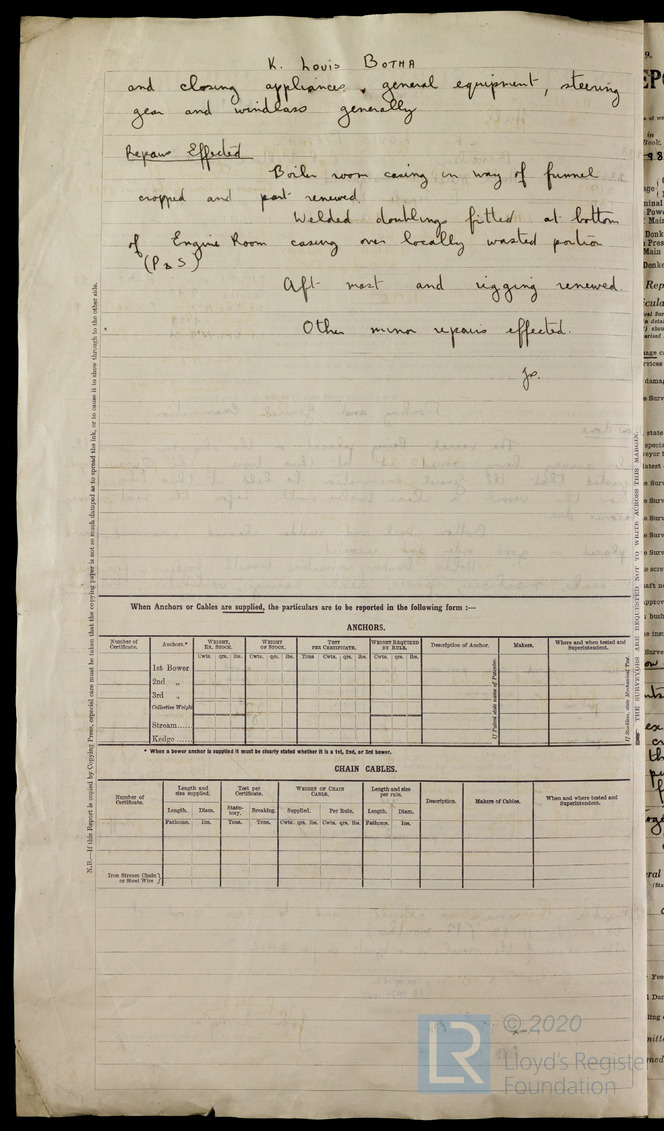 K. Louis BOTHA
and closing appliances, general equipment, steering
gear and windlass generally
Repairs Effected
Boiler room casing in way of funnel
cropped and part renewed.
Welded doublings fitted at bottom
of Engine Room casing over locally wasted portion
(P & S)
Aft mast and rigging renewed.
Other minor repairs effected.
When Anchors or Cables are supplied, the particulars are to be reported in the following form :—
ANCHORS.
Number of Certificate.
Anchors.*
WEIGHT, EX. STOCK.
WEIGHT OF STOCK.
TEST PER CERTIFICATE.
WEIGHT REQUIRED BY RULE.
Description of Anchor.
Makers.
Where and when tested and Superintendent.
Cwts. qrs. lbs. Cwts. qrs. lbs. Tons Cwt. qrs. lbs. Cwts. qrs. lbs.
1st Bower
2nd „
3rd „
Collective Weight
Stream......
Kedge ......
If Patent state name of Patentee.
* When a bower anchor is supplied it must be clearly stated whether it is a 1st, 2nd, or 3rd bower.
CHAIN CABLES.
Number of Certificate.
Length and size supplied.
Test per Certificate.
WEIGHT OF CHAIN CABLE.
Length and size per rule.
Description.
Makers of Cables.
When and where tested and Superintendent.
Length. Diam. Statutory. Breaking. Supplied. Per Rule. Length. Diam.
Fathoms. Ins. Tons. Tons. Cwts. qrs. lbs. Cwts. qrs. lbs. Fathoms. Ins.
Iron Stream Chain or Steel Wire }
N.B.—If this Report is copied by Copying Press, especial care must be taken that the copying paper is not so much damped as to spread the ink, or to cause it to show through to the other side.
THE SURVEYORS ARE REQUESTED NOT TO WRITE ACROSS THIS MARGIN.
LR
© 2020
Lloyd's Register
Foundation